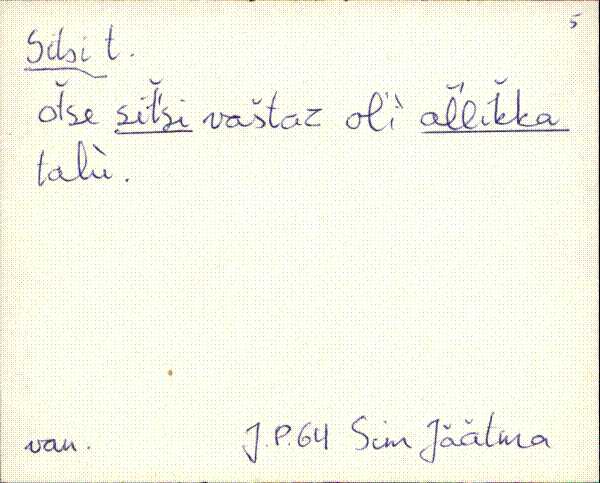 5
Sitsi t.
ot̆se sit̆'si vaštaz ol'ì al̆'l'ik̆ka
talù.
van.
J.P.64 Sim Jäätma